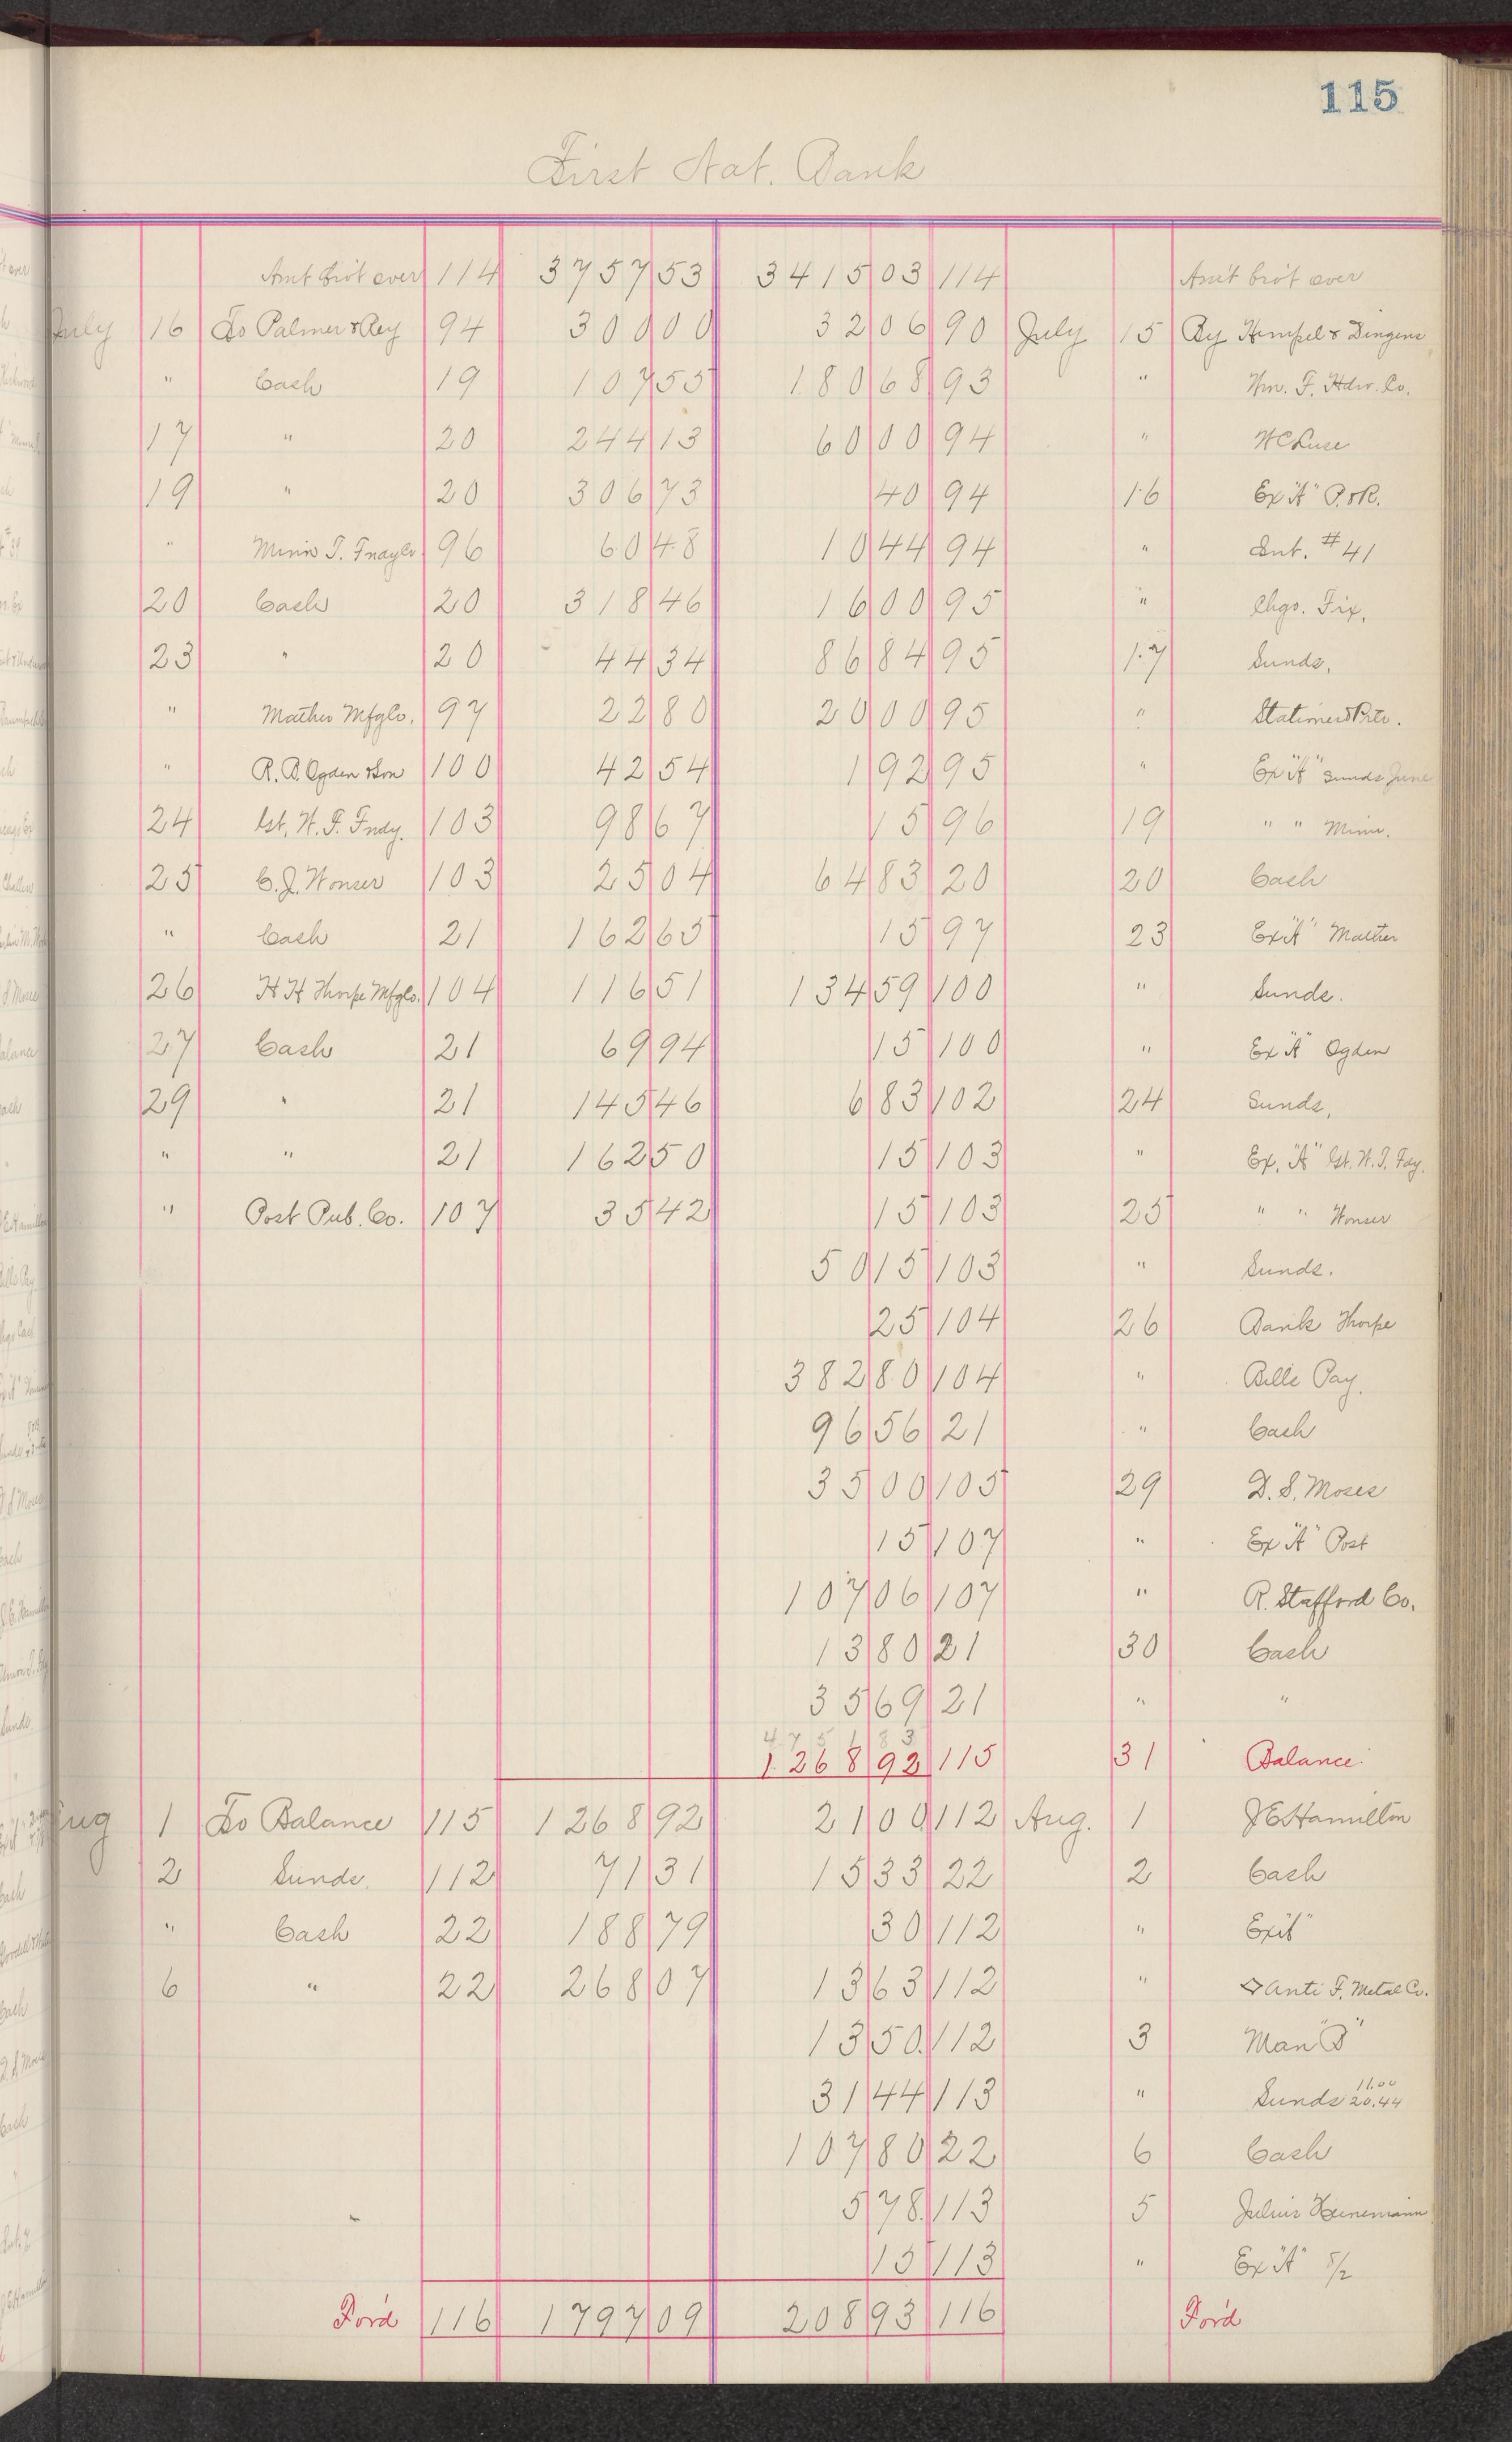 115
First Nat. Bank
Amt bro't over 114 3757 53 3415 03 114 Am't bro't over
July 16 To Palmer & Rey 94 300 00 32 06 90 July 15 By Hempel & Dingens
" Cash 19 107 55 180 68 93 " Wm. F. Hdw. Co.
17 " 20 244 13 60 00 94 " W C Luse
19 " 20 306 73 40 94 16 Ex "A" P. & R.
" Minn T. Fndy Co 96 60 48 10 44 94 " Int. # 41
20 Cash 20 318 46 16 00 95 " Chgo. Fix.
23 " 20 44 34 86 84 95 17 Sunds.
" Mather Mfg Co. 97 22 80 20 00 95 " Stationer & Ptr.
" R. B. Ogden & Son 100 42 54 1 92 95 " Ex "A" Sunds June
24 Gt. W. T. Fndy. 103 98 67 15 96 19 " " Minn.
25 C. J. Wonser 103 25 04 64 83 20 20 Cash
" Cash 21 162 65 15 97 23 Ex "A" Mather
26 H H Thorpe Mfg Co. 104 116 51 134 59 100 " Sunds.
27 Cash 21 69 94 15 100 " Ex "A" Ogden
29 " 21 145 46 6 83 102 24 Sunds.
" " 21 162 50 15 103 " Ex. "A" Gt. W. T. Fdy.
" Post Pub. Co. 107 35 42 15 103 25 " " Wonser
50 15 103 " Sunds.
25 104 26 Bank Thorpe
382 80 104 " Bills Pay.
96 56 21 " Cash
35 00 105 29 D. S. Moses
15 107 " Ex "A" Post
107 06 107 " R. Stafford Co.
13 80 21 30 Cash
35 69 21 " "
4751 83
1268 92 115 31 Balance
Aug 1 To Balance 115 1268 92 21 00 112 Aug. 1 J E Hamilton
2 Sunds. 112 71 31 15 33 22 2 Cash
" Cash 22 188 79 30 112 " Ex "A"
6 " 22 268 07 13 63 112 " Anti F. Metal Co.
13 50 112 3 Man "B"
31 44 113 " Sunds 11.00 20.44
107 80 22 6 Cash
5 78 113 5 Julius Heinemann
15 113 " Ex "A" 8/2
For'd 116 1797 09 208 93 116 For'd